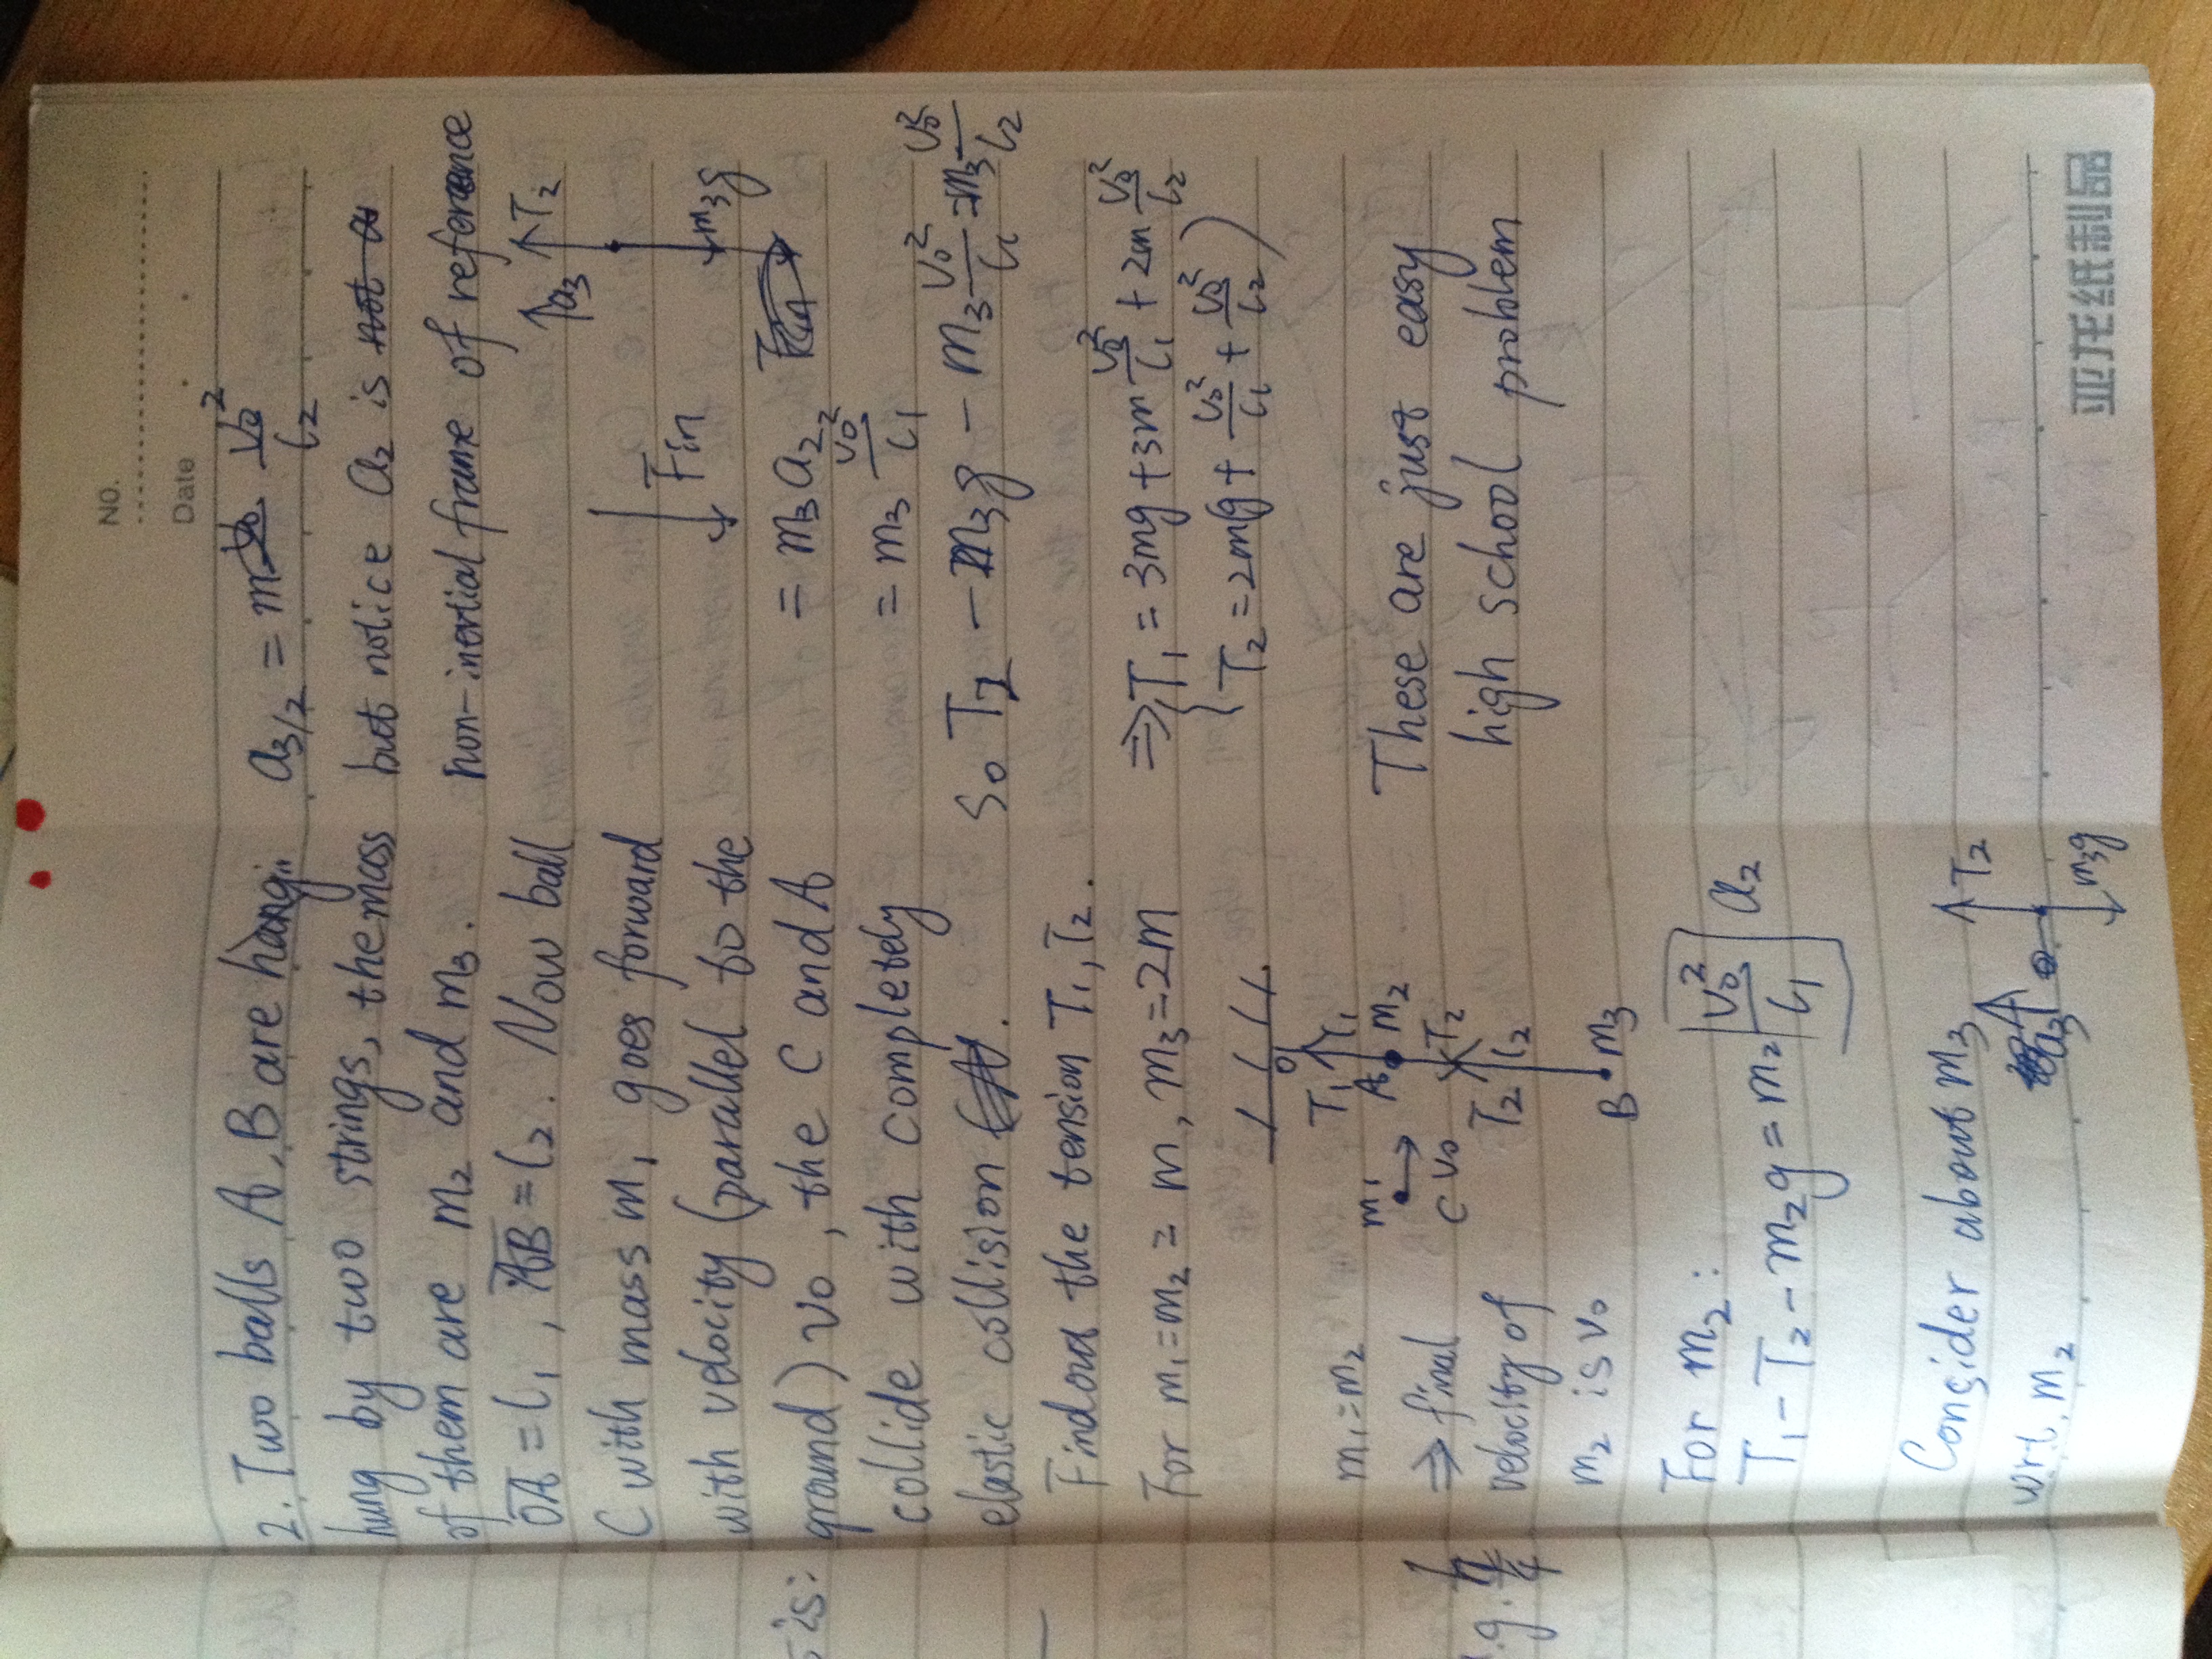 2. Two balls A, B are hangi..
hung by two strings, the mass
of them are m₂ and m₃.
O̅A̅ = l₁, A̅B̅ = l₂. Now ball
C with mass m₁ goes forward
with velocity (parallel to the
ground) v₀, the C and A
collide with completely
elastic collision.
Find out the tension T₁, T₂.
For m₁=m₂ = m, m₃=2m
O
T₁ l₁
m₁=m₂
m₁ A m₂
⇒ final
C v₀ T₂
velocity of
T₂ l₂
m₂ is v₀
B m₃
For m₂:
T₁-T₂-m₂g = m₂ [v₀²/l₁] a₂
Consider about m₃
wrt. m₂
T₂
a₃
m₃g
is:
.g. h/4
NO.
Date
a₃/₂ = m v₀²/l₂
but notice a₂ is not a
non-inertial frame of reference
a₃ T₂
Fin
m₃g
= m₃a₂
= m₃ v₀²/l₁
So T₂ - m₃g - m₃ v₀²/l₁ = m₃ v₀²/l₂
⇒ { T₁ = 3mg + 3m v₀²/l₁ + 2m v₀²/l₂
T₂ = 2m(g + v₀²/l₁ + v₀²/l₂)
These are just easy
high school problem
亚龙纸制品